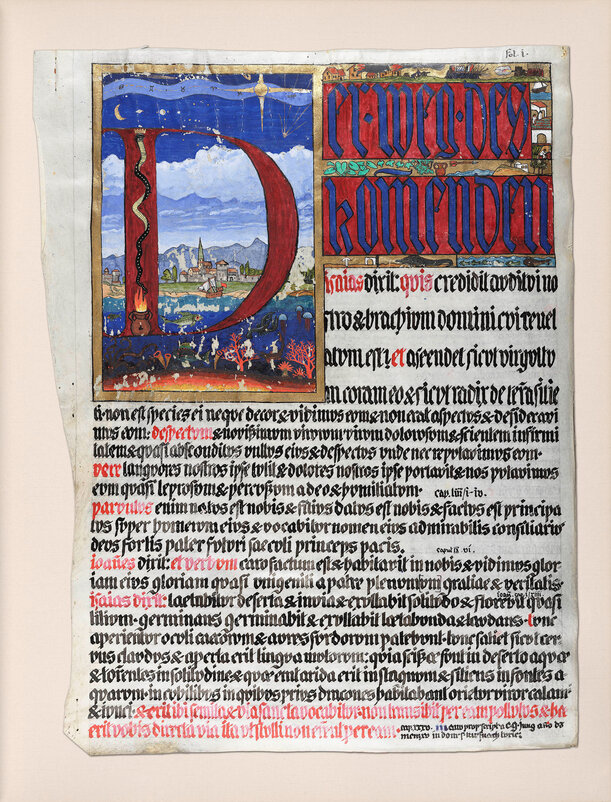 Fol. i.
Der · weg · des
komenden
isaias dixit: quis credidit auditui no
stro & brachium domini cui revel
atum est? et ascendet sicut virgultu
m coram eo & sicut radix de terra sitie
ti · non est species ei neque decor & vidimus eum & non erat aspectus & desideravi
mus eum: despectum & novissimum virorum virum dolorosum & scientem infirmi
tatem & quasi absconditus vultus eius & despectus unde nec reputavimus eum ·
vere languores nostros ipse tulit & dolores nostros ipse portavit & nos putavimus
eum quasi leprosum & percussum a deo & humiliatum · cap. liii/i-iv.
parvulus enim natus est nobis & filius datus est nobis & factus est principa
tus super humerum eius & vocabitur nomen eius admirabilis consiliarius
deus fortis pater futuri saeculi princeps pacis. caput ix. vi.
ioañes dixit: et verbum caro factum est & habitavit in nobis & vidimus glor
iam eius gloriam quasi unigeniti a patre plenum gratiae & veritatis · ioañ. cap. i/xiiii
isaias dixit: laetabitur deserta & invia & exultabit solitudo & florebit quasi
lilium · germinans germinabit & exultabit laetabunda & laudans · tunc
aperientur oculi caecorum & aures surdorum patebunt · tunc saliet sicut cer
vus claudus & aperta erit lingua mutorum: quia scissae sunt in deserto aquae
& torrentes in solitudine & quae erat arida erit in stagnum & sitiens in fontes a
quarum · in cubilibus in quibus prius dracones habitabant orietur viror calami
& iunci · & erit ibi semita & via sancta vocabitur · non transibit per eam pollutus & haec
erit vobis directa via ita ut stulti non errent per eam · cap. xxxv. manu propr script a C.G. Jung año dõ
mcmxv in dom